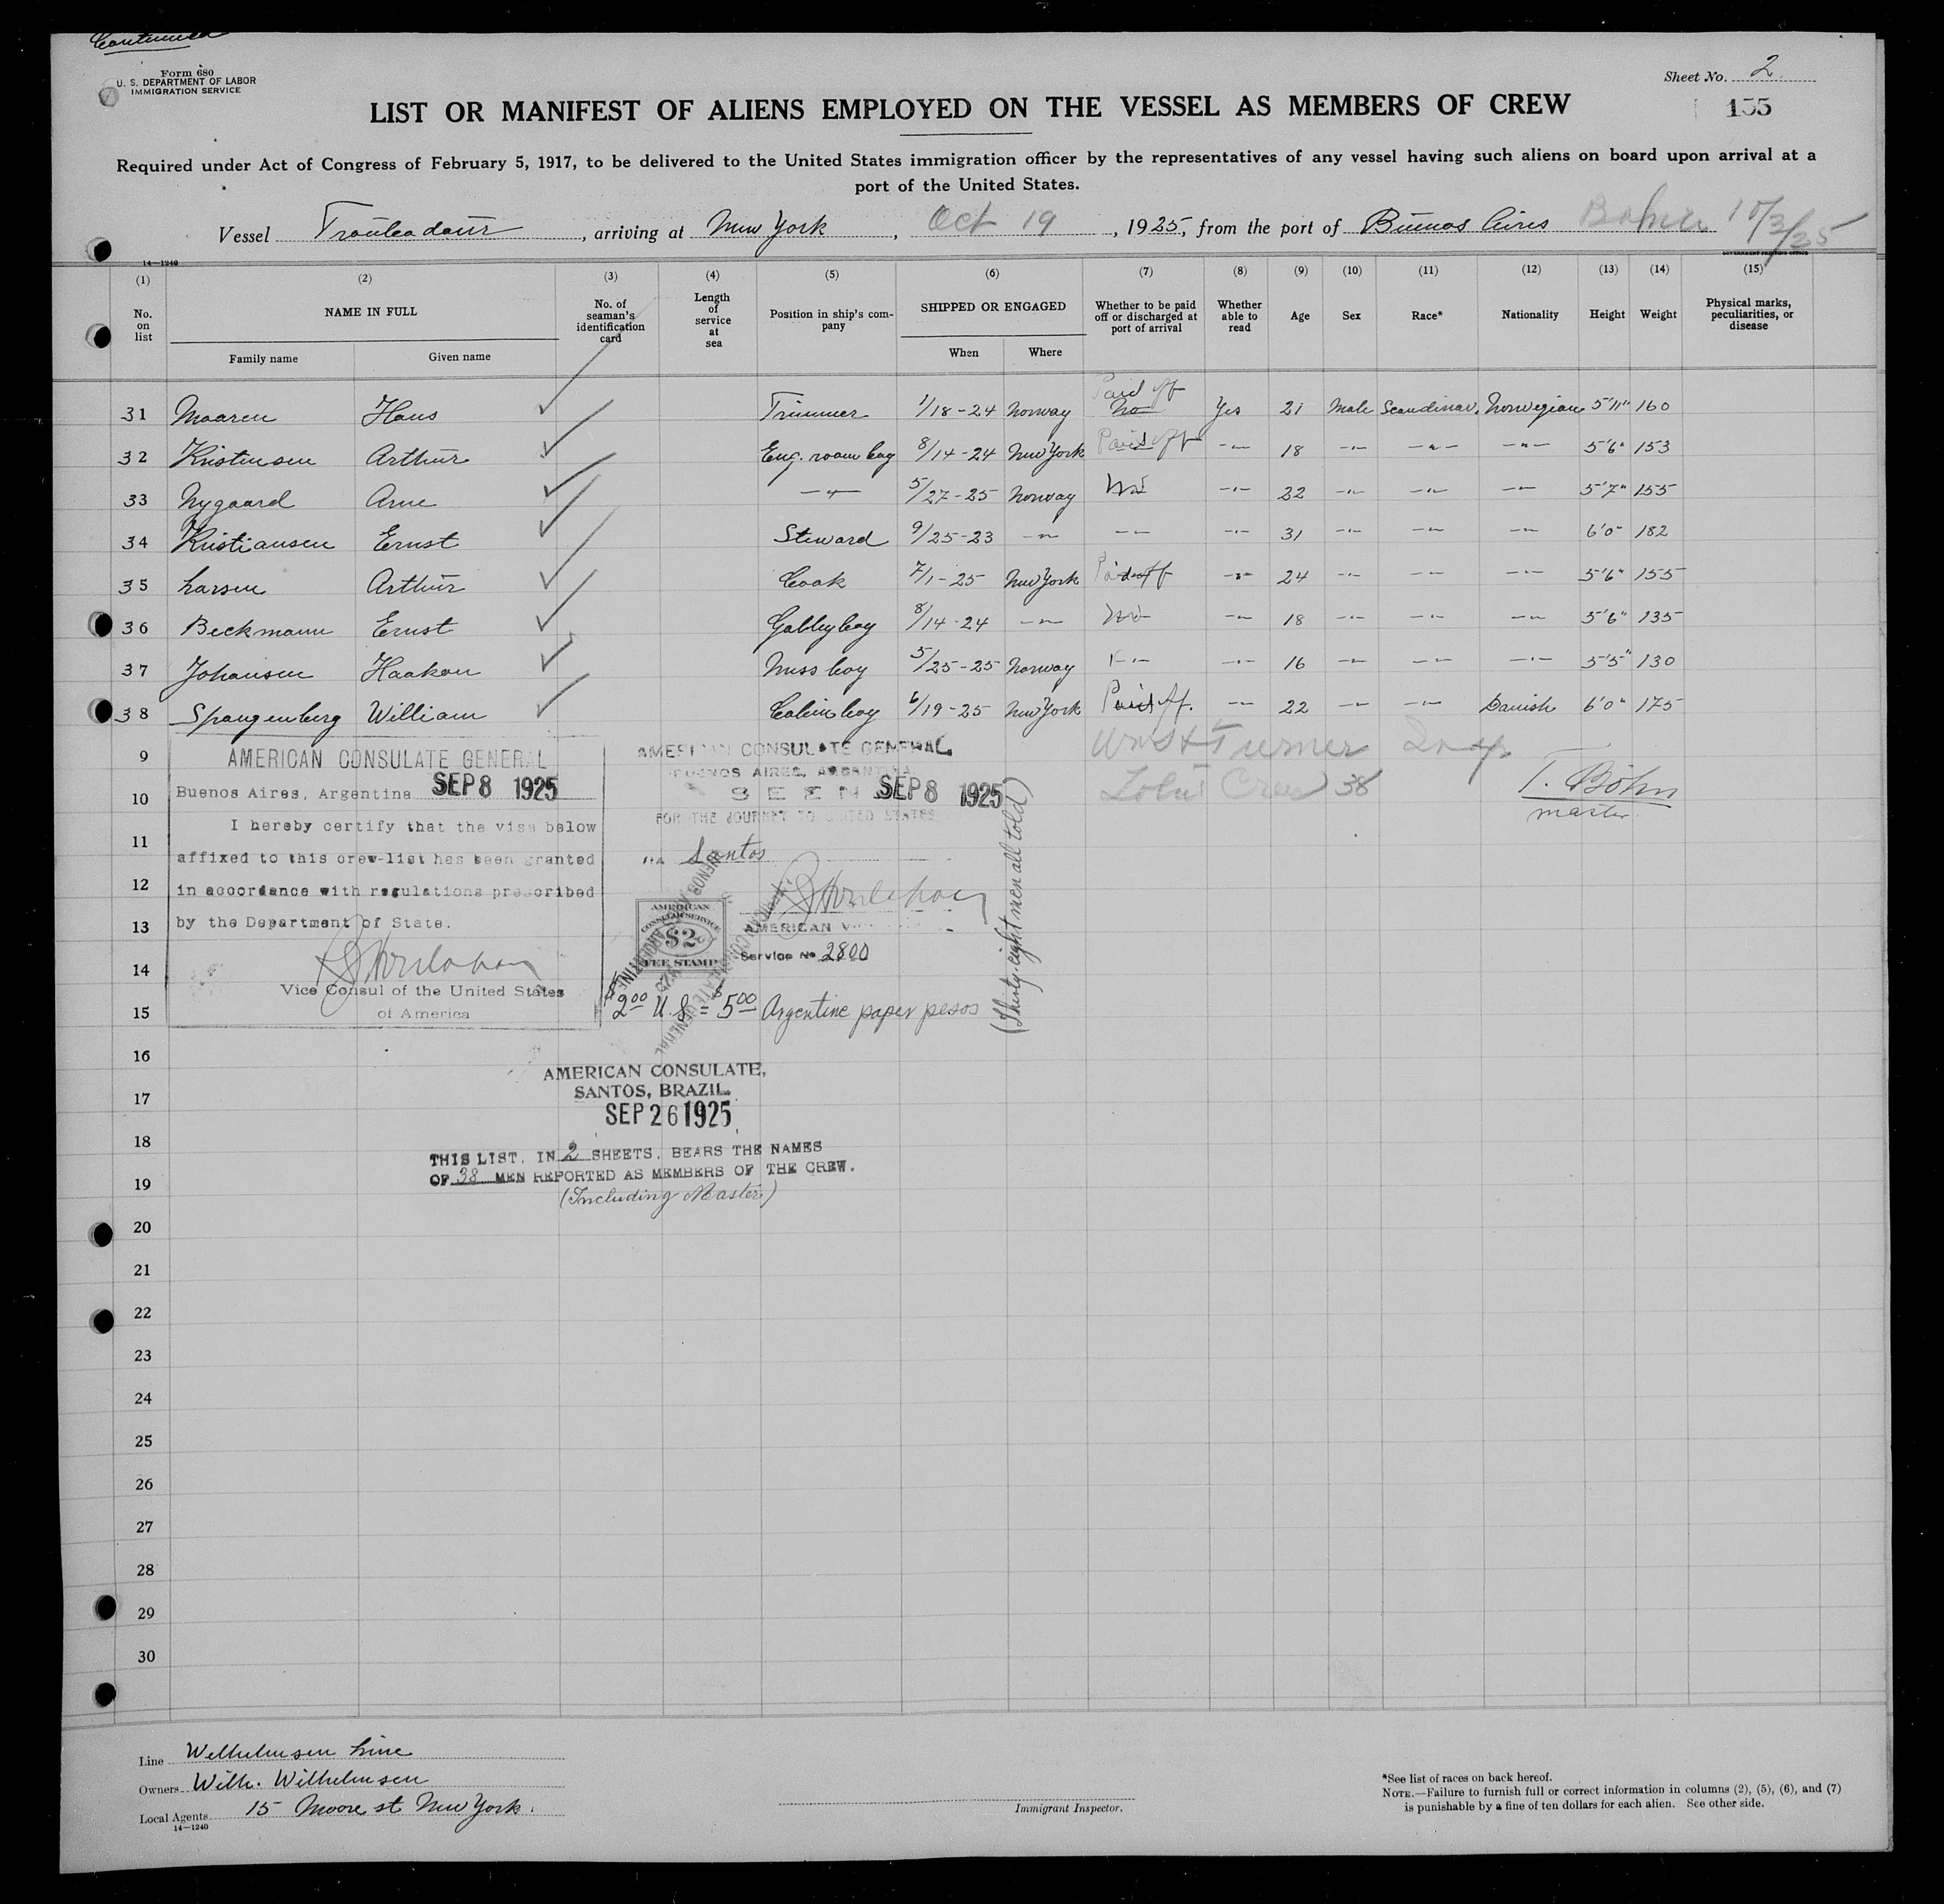 Continued
Form 680
U. S. DEPARTMENT OF LABOR
IMMIGRATION SERVICE
Sheet No. 2
155
LIST OR MANIFEST OF ALIENS EMPLOYED ON THE VESSEL AS MEMBERS OF CREW
Required under Act of Congress of February 5, 1917, to be delivered to the United States immigration officer by the representatives of any vessel having such aliens on board upon arrival at a
port of the United States.
Vessel Troubadour, arriving at New York, Oct 19, 1925, from the port of Buenos Aires
14—1240
GOVERNMENT PRINTING OFFICE
(1) (2) (3) (4) (5) (6) (7) (8) (9) (10) (11) (12) (13) (14) (15)
No. on list
NAME IN FULL
Family name
Given name
No. of seaman's identification card
Length of service at sea
Position in ship's company
SHIPPED OR ENGAGED
When
Where
Whether to be paid off or discharged at port of arrival
Whether able to read
Age
Sex
Race*
Nationality
Height
Weight
Physical marks, peculiarities, or disease
31 Maaren Hans Trimmer 1/18-24 Norway Paid off No Yes 21 Male Scandinav. Norwegian 5'11" 160
32 Kristensen Arthur Eng. room boy 8/14-24 New York Paid off -"- 18 -"- -"- -"- 5'6" 153
33 Nygaard Arne -"- 5/27-25 Norway No -"- 22 -"- -"- -"- 5'7" 155
34 Kristiansen Ernst Steward 9/25-23 -"- -"- -"- 31 -"- -"- -"- 6'0" 182
35 Larsen Arthur Cook 7/1-25 New York Paid off -"- 24 -"- -"- -"- 5'6" 155
36 Beckmann Ernst Galleyboy 8/14-24 -"- No -"- 18 -"- -"- -"- 5'6" 135
37 Johansen Haakon Mess boy 5/25-25 Norway -"- -"- 16 -"- -"- -"- 5'5" 130
38 Spangenberg William Cabin boy 6/19-25 New York Paid off. -"- 22 -"- -"- Danish 6'0" 175
9
10
11
12
13
14
15
16
17
18
19
20
21
22
23
24
25
26
27
28
29
30
AMERICAN CONSULATE GENERAL
Buenos Aires, Argentina SEP 8 1925
I hereby certify that the visa below
affixed to this crew-list has been granted
in accordance with regulations prescribed
by the Department of State.
Vice Consul of the United States
of America
AMERICAN CONSULATE GENERAL
BUENOS AIRES, ARGENTINA
SEEN SEP 8 1925
FOR THE JOURNEY TO UNITED STATES
VIA Santos
AMERICAN
CONSULAR SERVICE
$2
FEE STAMP
AMERICAN V
Service No 2800
$2.00 U.S = $5.00 Argentine paper pesos
(Thirty-eight men all told)
Turner
Total Crew 38
T. Böhn
master
AMERICAN CONSULATE,
SANTOS, BRAZIL.
SEP 26 1925
THIS LIST, IN 2 SHEETS, BEARS THE NAMES
OF 38 MEN REPORTED AS MEMBERS OF THE CREW.
(Including Master)
Line Wilhelmsen Line
Owners Wilh. Wilhelmsen
Local Agents 15 Moore st New York.
14—1240
Immigrant Inspector.
*See list of races on back hereof.
NOTE.—Failure to furnish full or correct information in columns (2), (5), (6), and (7)
is punishable by a fine of ten dollars for each alien. See other side.